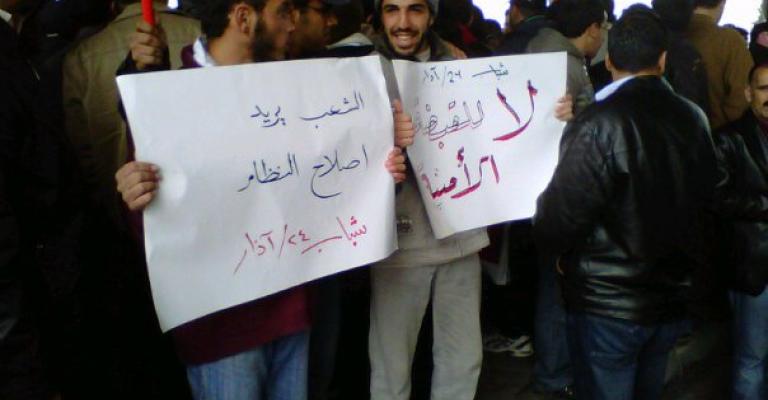 الشعب يريد
اصلاح النظام
شباب ٢٤/آذار
شباب ٢٤/آذار
لا للقبضة
الأمنية